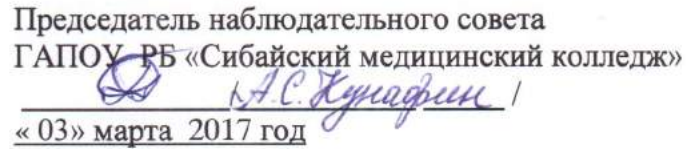 Председатель наблюдательного совета
ГАПОУ РБ «Сибайский медицинский колледж»
/А.С. Кунафин /
« 03» марта 2017 год